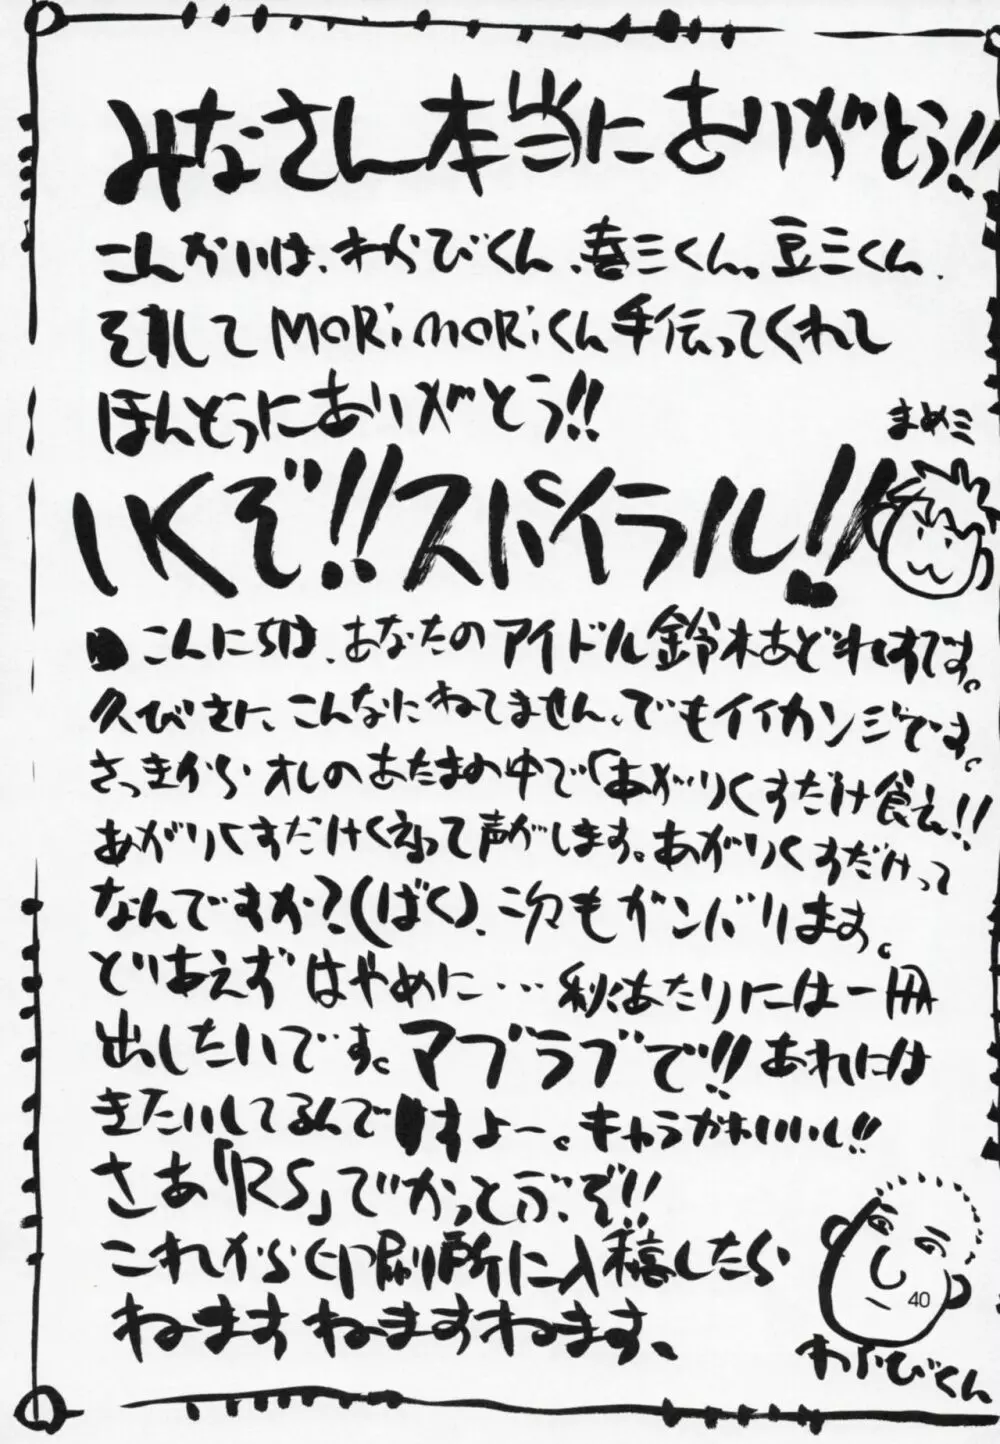 みなさん本当にありがとう!!
こんかいは、わらびくん、喜三くん。豆三くん、
そしてMORiMORiくん手伝ってくれて
ほんどうにありがとう!!
まめミ
いくぞ!!スパイラル!!
●こんにちは、あなたのアイドル鈴木あどれすです。
久びさに、こんなにねてません、でもイイカンジです。
さっきからオレのあたまの中で「あがりくすだけ食え!!
あがりくすだけくえって声がします。あがりくすだけって
なんですか?(ばく)、次もガンバります。
とりあえずはやめに…秋あたりには一冊
出したいです。マブラブで!!あれには
きたいしてるんですよー。キャラかわいいし!!
さあ「RS」でかっとぶぞ!!
これから印刷所に入稿したら
ねますねますねます、
40
わらびくん